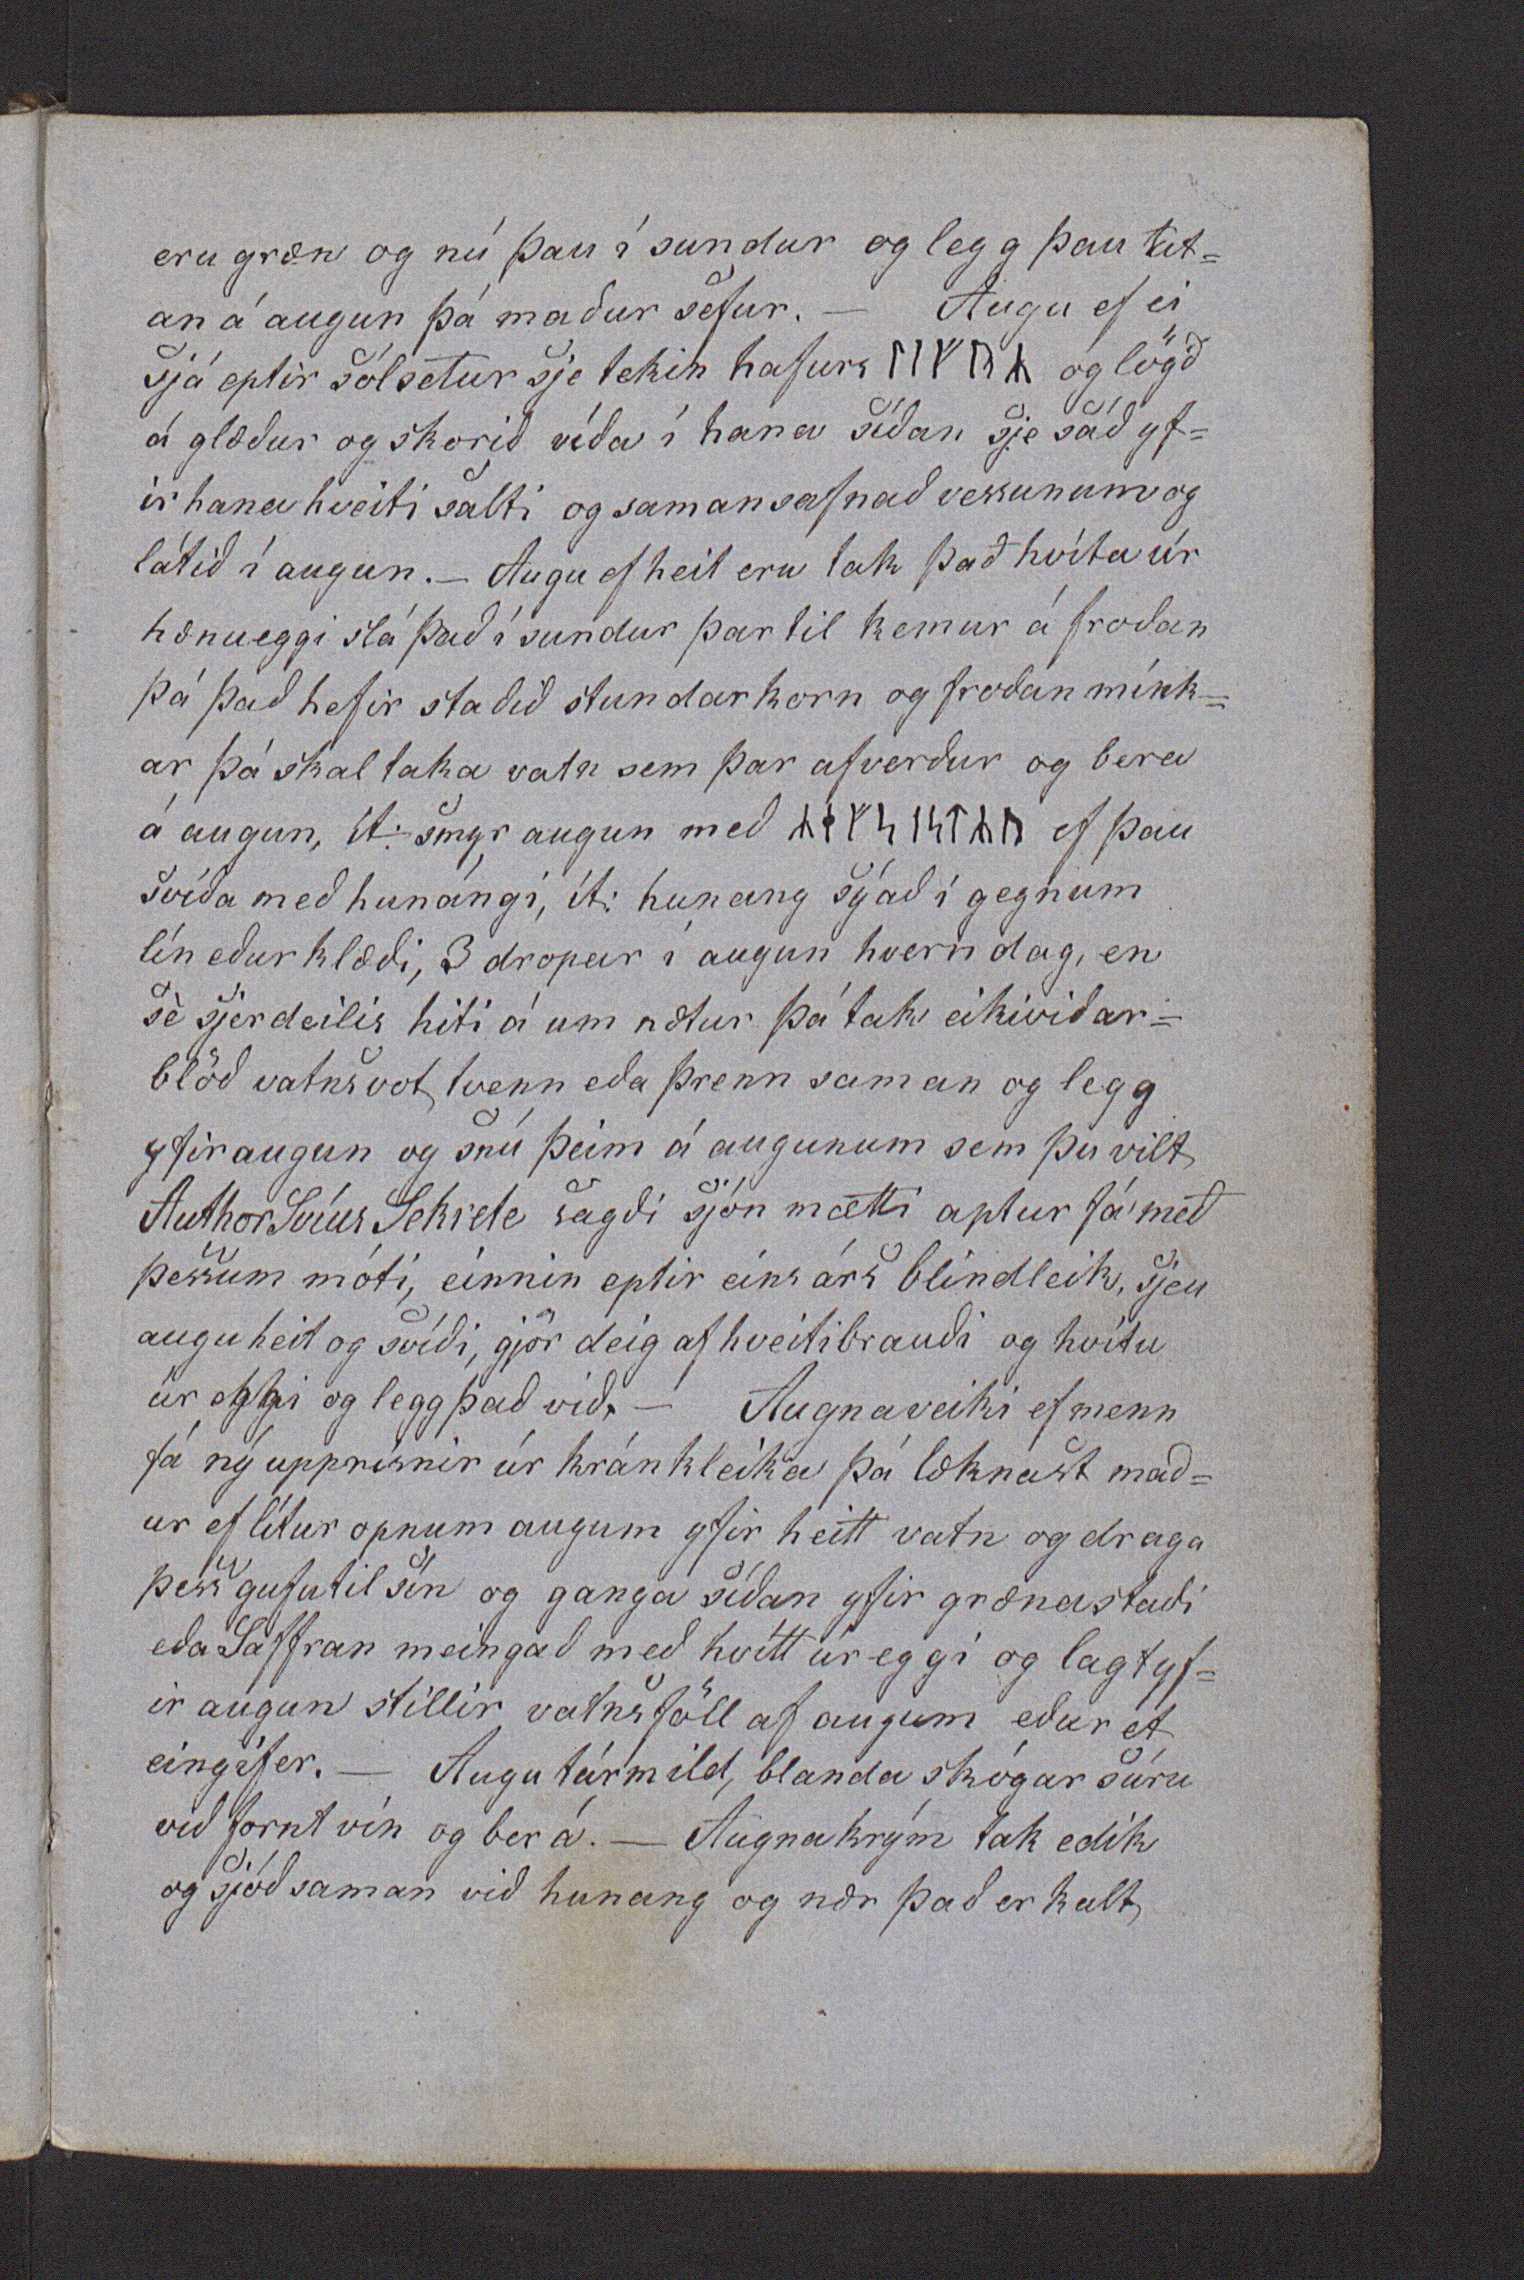 eru græn og nú þau í sundur og legg þau ut=
an á augun þá maður sefur. — Augu ef ei
sjá eptir sólsetur sje tekin hafurs ᛚᛁᚠᚢᚱ og lögð
á glæður og skorið víða í hana síðan sje sáð yf=
ir hana hveiti salti og saman safnað vessunum og
látið í augun. — Augu ef heit eru tak það hvíta úr
hænueggi slá það í sundur þar til kemur á froðan
þá það hefir staðið stundarkorn og froðan mínk=
ar þá skal taka vatn sem þar af verður og bera
á augun, ít: smyr augun með ef þau
svíða með hunángi, ít: hunang sýað í gegnum
lín eður klæði, 3 dropar í augun hvern dag, en
sè sjerdeilis hiti á um nætur þá tak eikiviðar=
blöð vatnsvot, tvenn eða þrenn saman og legg
yfir augun og snú þeim á augunum sem þu vilt,
Author Sekrete sagði sjón mætti aptur fá með
þessum móti, einnin eptir eins árs blindleik, sjeu
augu heit og svíði, gjör deig af hveitibrauði og hvítu
úr eggi og legg það við. — Augnaveiki ef menn
fá ný upprisnir úr kránkleika þá læknast mað=
ur ef lítur opnum augum yfir heitt vatn og draga
þess gufu til sín og ganga síðan yfir græna staði
eða Saffran meingað með hvítt úr eggi og lagt yf=
ir augun stillir vatnsföll af augum eður et
eingifer. — Augu tármild, blanda skógar súru
við fornt vín og ber á. — Augnakrým tak edik
og sjóð saman við hunang og nær það er kalt,